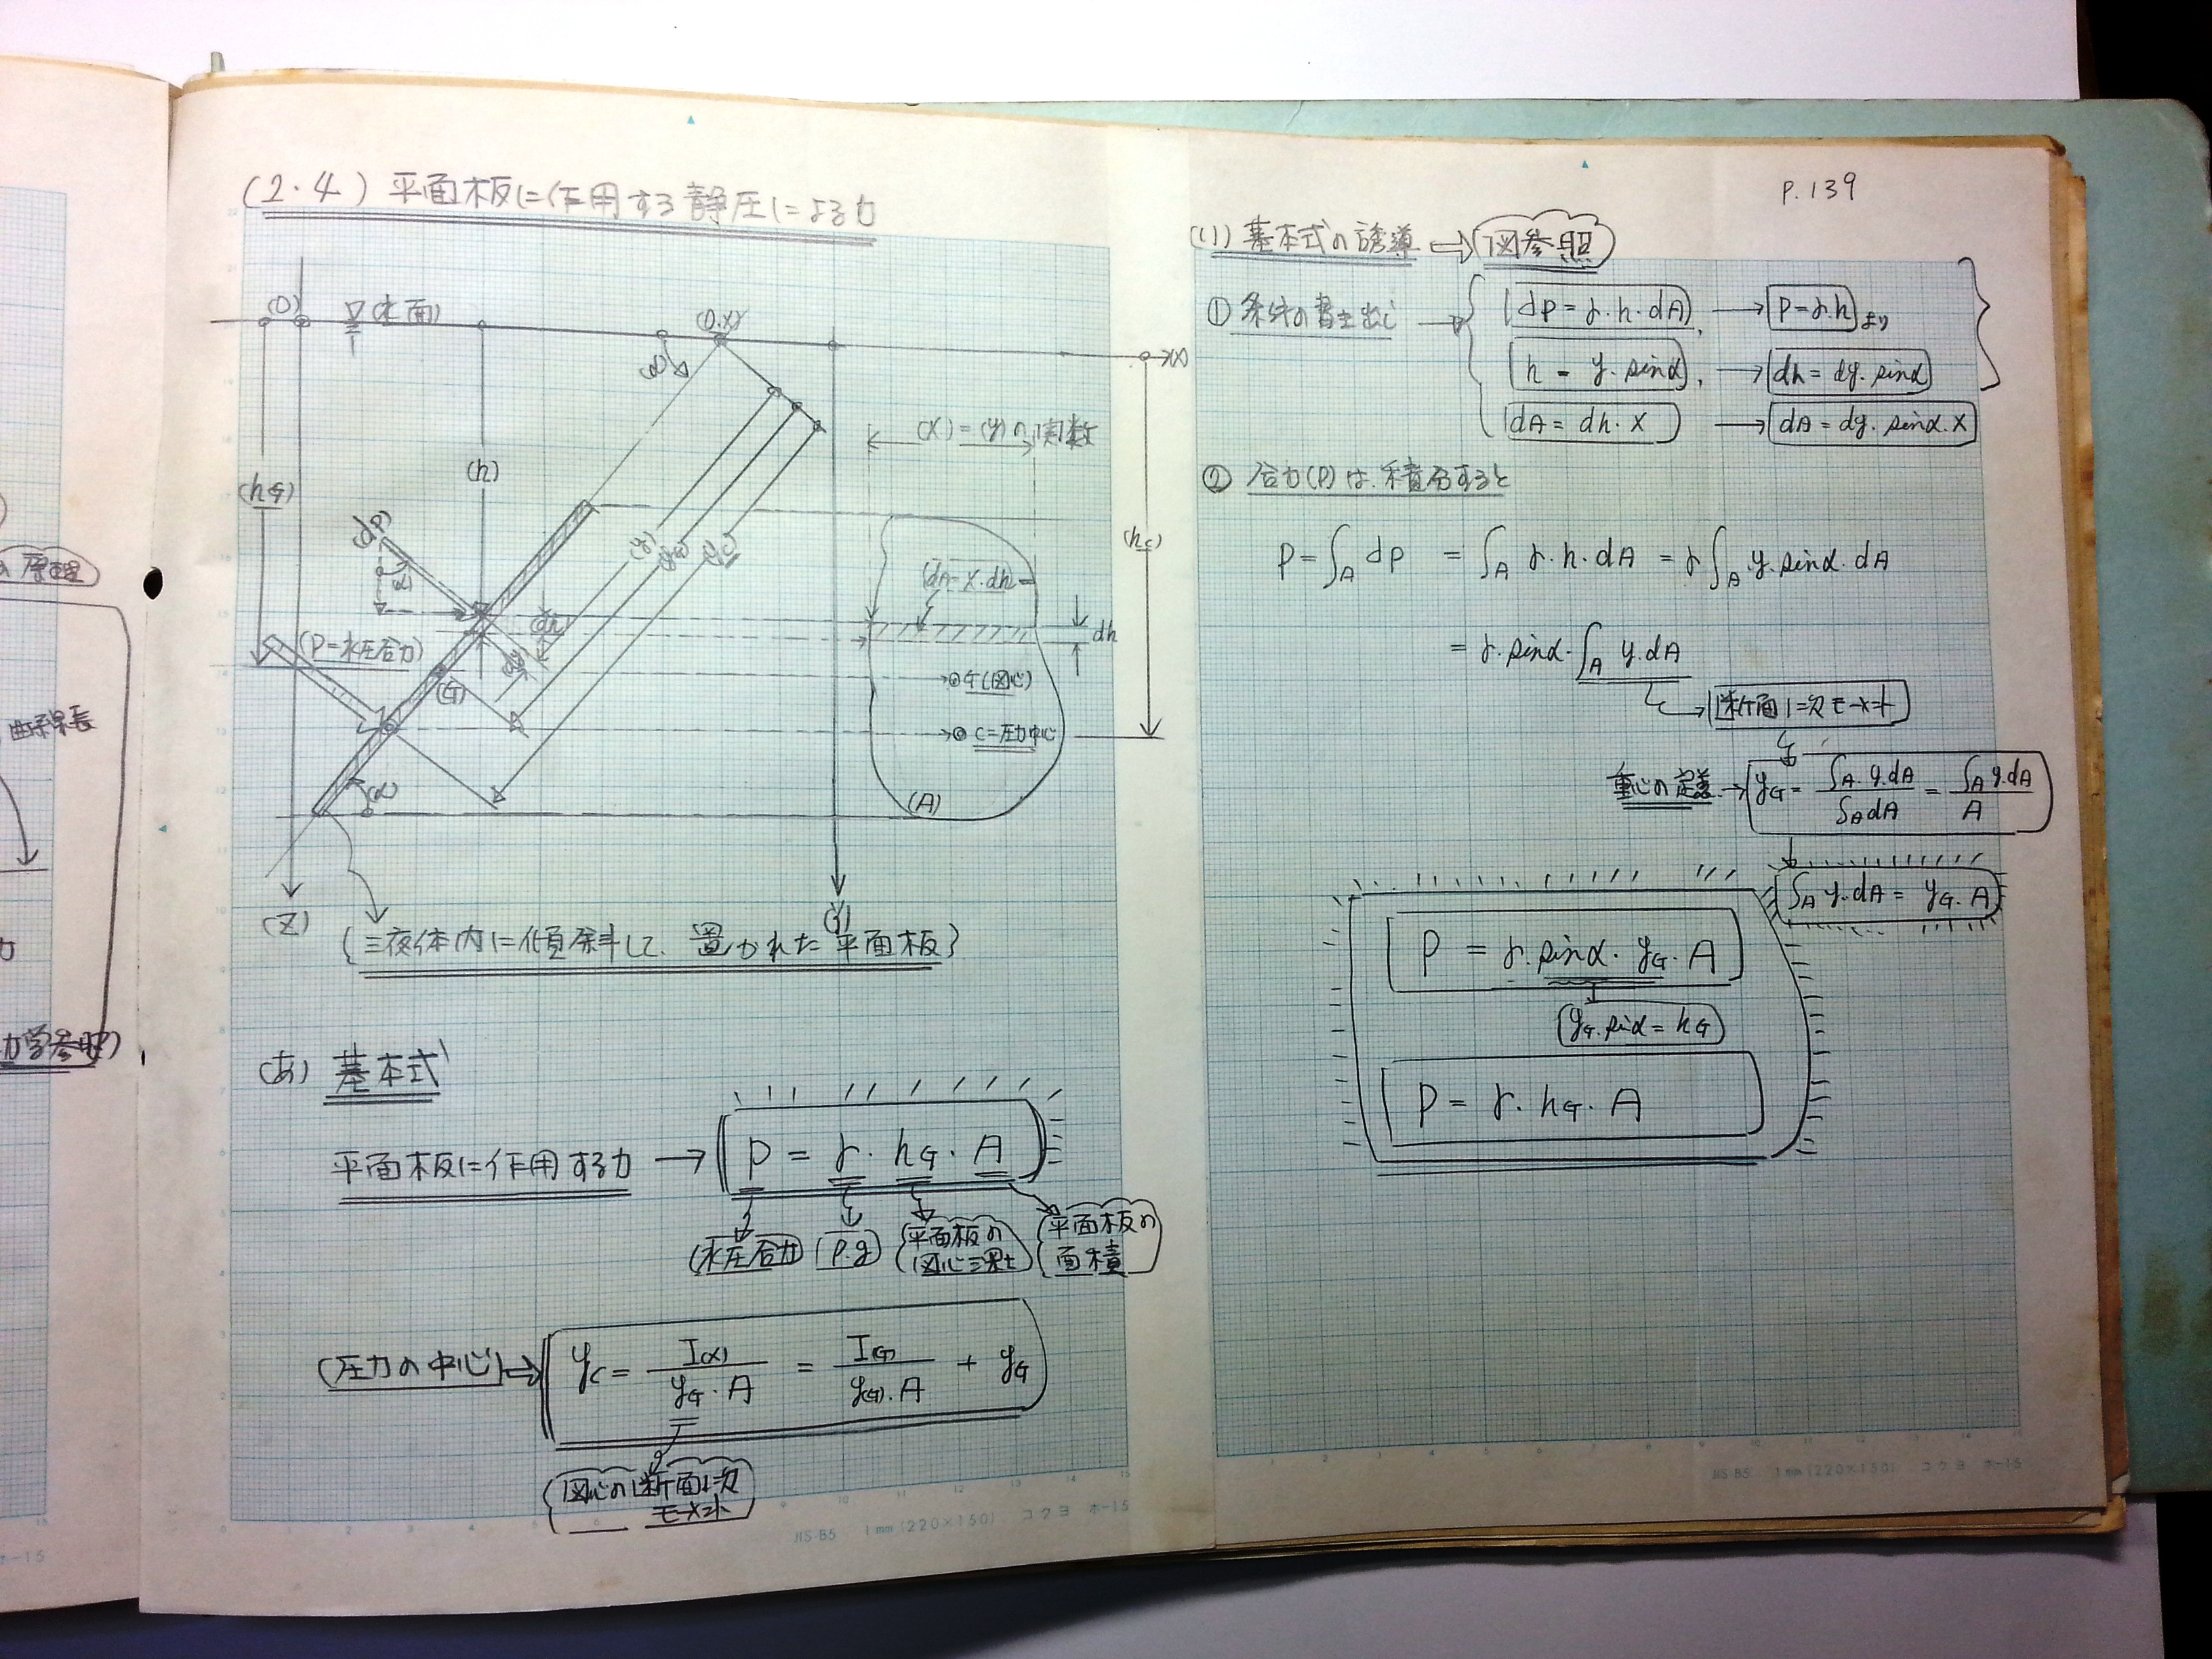 (2.4) 平面板に作用する静圧による力
(0)
(水面)
(0.x)
(x)
(α)
(x) = (y)の関数
(hG)
(h)
(hc)
(dP)
(α)
(y)
(yG)
(yc)
(dA=x.dh)
dh
(dh)
(dy)
(P=水圧合力)
(G)
G(図心)
C=圧力中心
(α)
(A)
(Z)
(y)
(液体内に傾斜して、置かれた平面板)
(あ) 基本式
平面板に作用する力 → P = γ. hG. A
(水圧合力) (ρ.g) (平面板の図心深さ) (平面板の面積)
(圧力の中心)⇒ yc = I(x) / yG . A = I(G) / y(G) . A + yG
(図心の断面1次
モーメント)
JIS-B5 1mm(220×150) コクヨ ホ-15
P.139
(1) 基本式の誘導 ⇒ 図参照
① 条件の書き出し → (dP = γ. h. dA), → P = γ.h より
h = y. sinα, → dh = dy. sinα
dA = dh. x → dA = dy. sinα. x
② 合力(P)は.積分すると
P = ∫A dP = ∫A γ. h. dA = γ ∫A y. sinα. dA
= γ. sinα. ∫A y.dA
断面1次モーメント
重心の定義 → yG = ∫A. y.dA / ∫A dA = ∫A y.dA / A
∫A y.dA = yG. A
P = γ. sinα. yG. A
(yG. sinα = hG)
P = γ. hG. A
JIS-B5 1mm(220×150) コクヨ ホ-15
の原理
曲線長
力
力学参照)
ホ-15